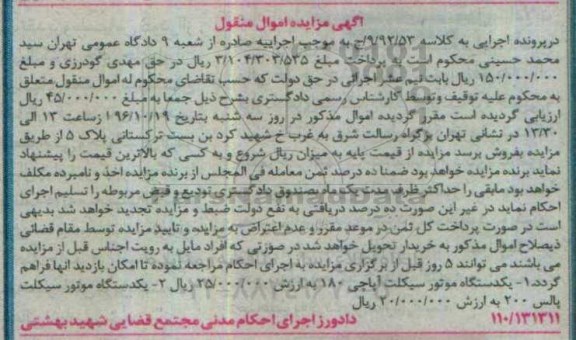 آگهی مزایده اموال منقول
درپرونده اجرایی به کلاسه ۹/۹۲/۵۳/ج به موجب اجراییه صادره از شعبه ۹ دادگاه عمومی تهران سید
محمد حسینی محکوم است به پرداخت مبلغ ۳/۱۰۴/۳۰۳/۵۳۵ ریال در حق مهدی گودرزی و مبلغ
۱۵۰/۰۰۰/۰۰۰ ریال بابت نیم عشر اجرائی در حق دولت که حسب تقاضای محکوم له اموال منقول متعلق
به محکوم علیه توقیف و توسط کارشناس رسمی دادگستری بشرح ذیل جمعا به مبلغ ۴۵/۰۰۰/۰۰۰ ریال
ارزیابی گردیده است مقرر گردیده اموال مذکور در روز سه شنبه بتاریخ ۹۶/۱۰/۱۹ ازساعت ۱۳ الی
۱۳/۳۰ در نشانی تهران بزرگراه رسالت شرق به غرب خ شهید کرد بن بست ترکستانی پلاک ۵ از طریق
مزایده بفروش برسد مزایده از قیمت پایه به میزان ریال شروع و به کسی که بالاترین قیمت را پیشنهاد
نماید برنده مزایده خواهد بود ضمنا ده درصد ثمن معامله فی المجلس از برنده مزایده اخذ و نامبرده مکلف
خواهد بود مابقی را حداکثر ظرف مدت یک ماه بصندوق دادگستری تودیع و قبض مربوطه را تسلیم اجرای
احکام نماید در غیر این صورت ده درصد دریافتی به نفع دولت ضبط و مزایده تجدید خواهد شد بدیهی
است در صورت پرداخت کل ثمن در موعد مقرر و عدم اعتراض به مزایده و تایید مزایده توسط مقام قضائی
ذیصلاح اموال مذکور به خریدار تحویل خواهد شد در صورتی که افراد مایل به رویت اجناس قبل از مزایده
می باشند می توانند ۵ روز قبل از برگزاری مزایده به اجرای احکام مراجعه نموده تا امکان بازدید آنها فراهم
گردد.۱- یکدستگاه موتور سیکلت آپاچی ۱۸۰ به ارزش ۲۵/۰۰۰/۰۰۰ ریال ۲- یکدستگاه موتور سیکلت
پالس ۲۰۰ به ارزش ۲۰/۰۰۰/۰۰۰ ریال
۱۱۰/۱۳۱۳۱۱ دادورز اجرای احکام مدنی مجتمع قضایی شهید بهشتی